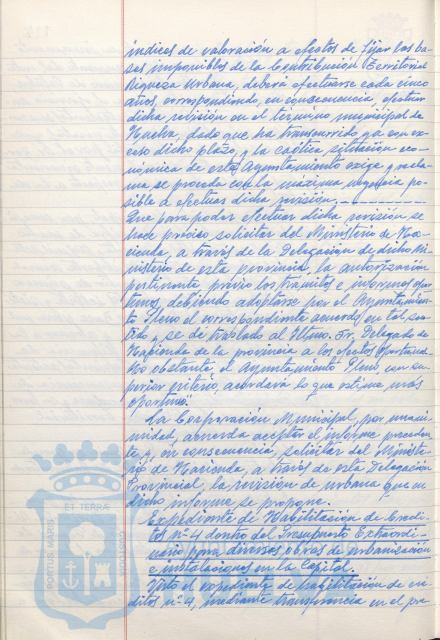 índices de valoración a efectos de fijar las ba-
ses imponibles de la Contribución Territorial
Riqueza Urbana, deberá efectuarse cada cinco
años, correspondiendo, en consecuencia, efectuar
dicha revisión en el término municipal de
Huelva, dado que ha transcurrido ya con ex-
ceso dicho plazo, y la caótica situación eco-
nómica de este Ayuntamiento exige y recla-
ma se proceda con la máxima urgencia po-
sible a efectuar dicha revisión.
Que para poder efectuar dicha revisión se
hace preciso solicitar del Ministerio de Ha-
cienda, a través de la Delegación de dicho Mi-
nisterio de esta provincia, la autorización
pertinente, previo los trámites e informes opor-
tunos, debiendo adoptarse por el Ayuntamien-
to Pleno el correspondiente acuerdo en tal sen-
tido, y se dé traslado al Iltmo. Sr. Delegado de
Hacienda de la provincia a los efectos oportunos.
No obstante el Ayuntamiento Pleno, con su-
perior criterio, acordará lo que estime más
oportuno".
La Corporación Municipal, por unani-
midad, acuerda aceptar el informe preceden-
te y, en consecuencia, solicitar del Ministe-
rio de Hacienda, a través de esta Delegación
Provincial, la revisión de urbana que en
dicho informe se propone.
Expediente de Habilitación de Crédi-
tos nº 4 dentro del Presupuesto Extraordi-
nario para diversas obras de urbanización
e instalaciones en la Capital.
Visto el expediente de habilitación de cré-
ditos nº 4, mediante transferencia en el pre
ET TERRÆ
PORTUS MARIS
CUSTODIA